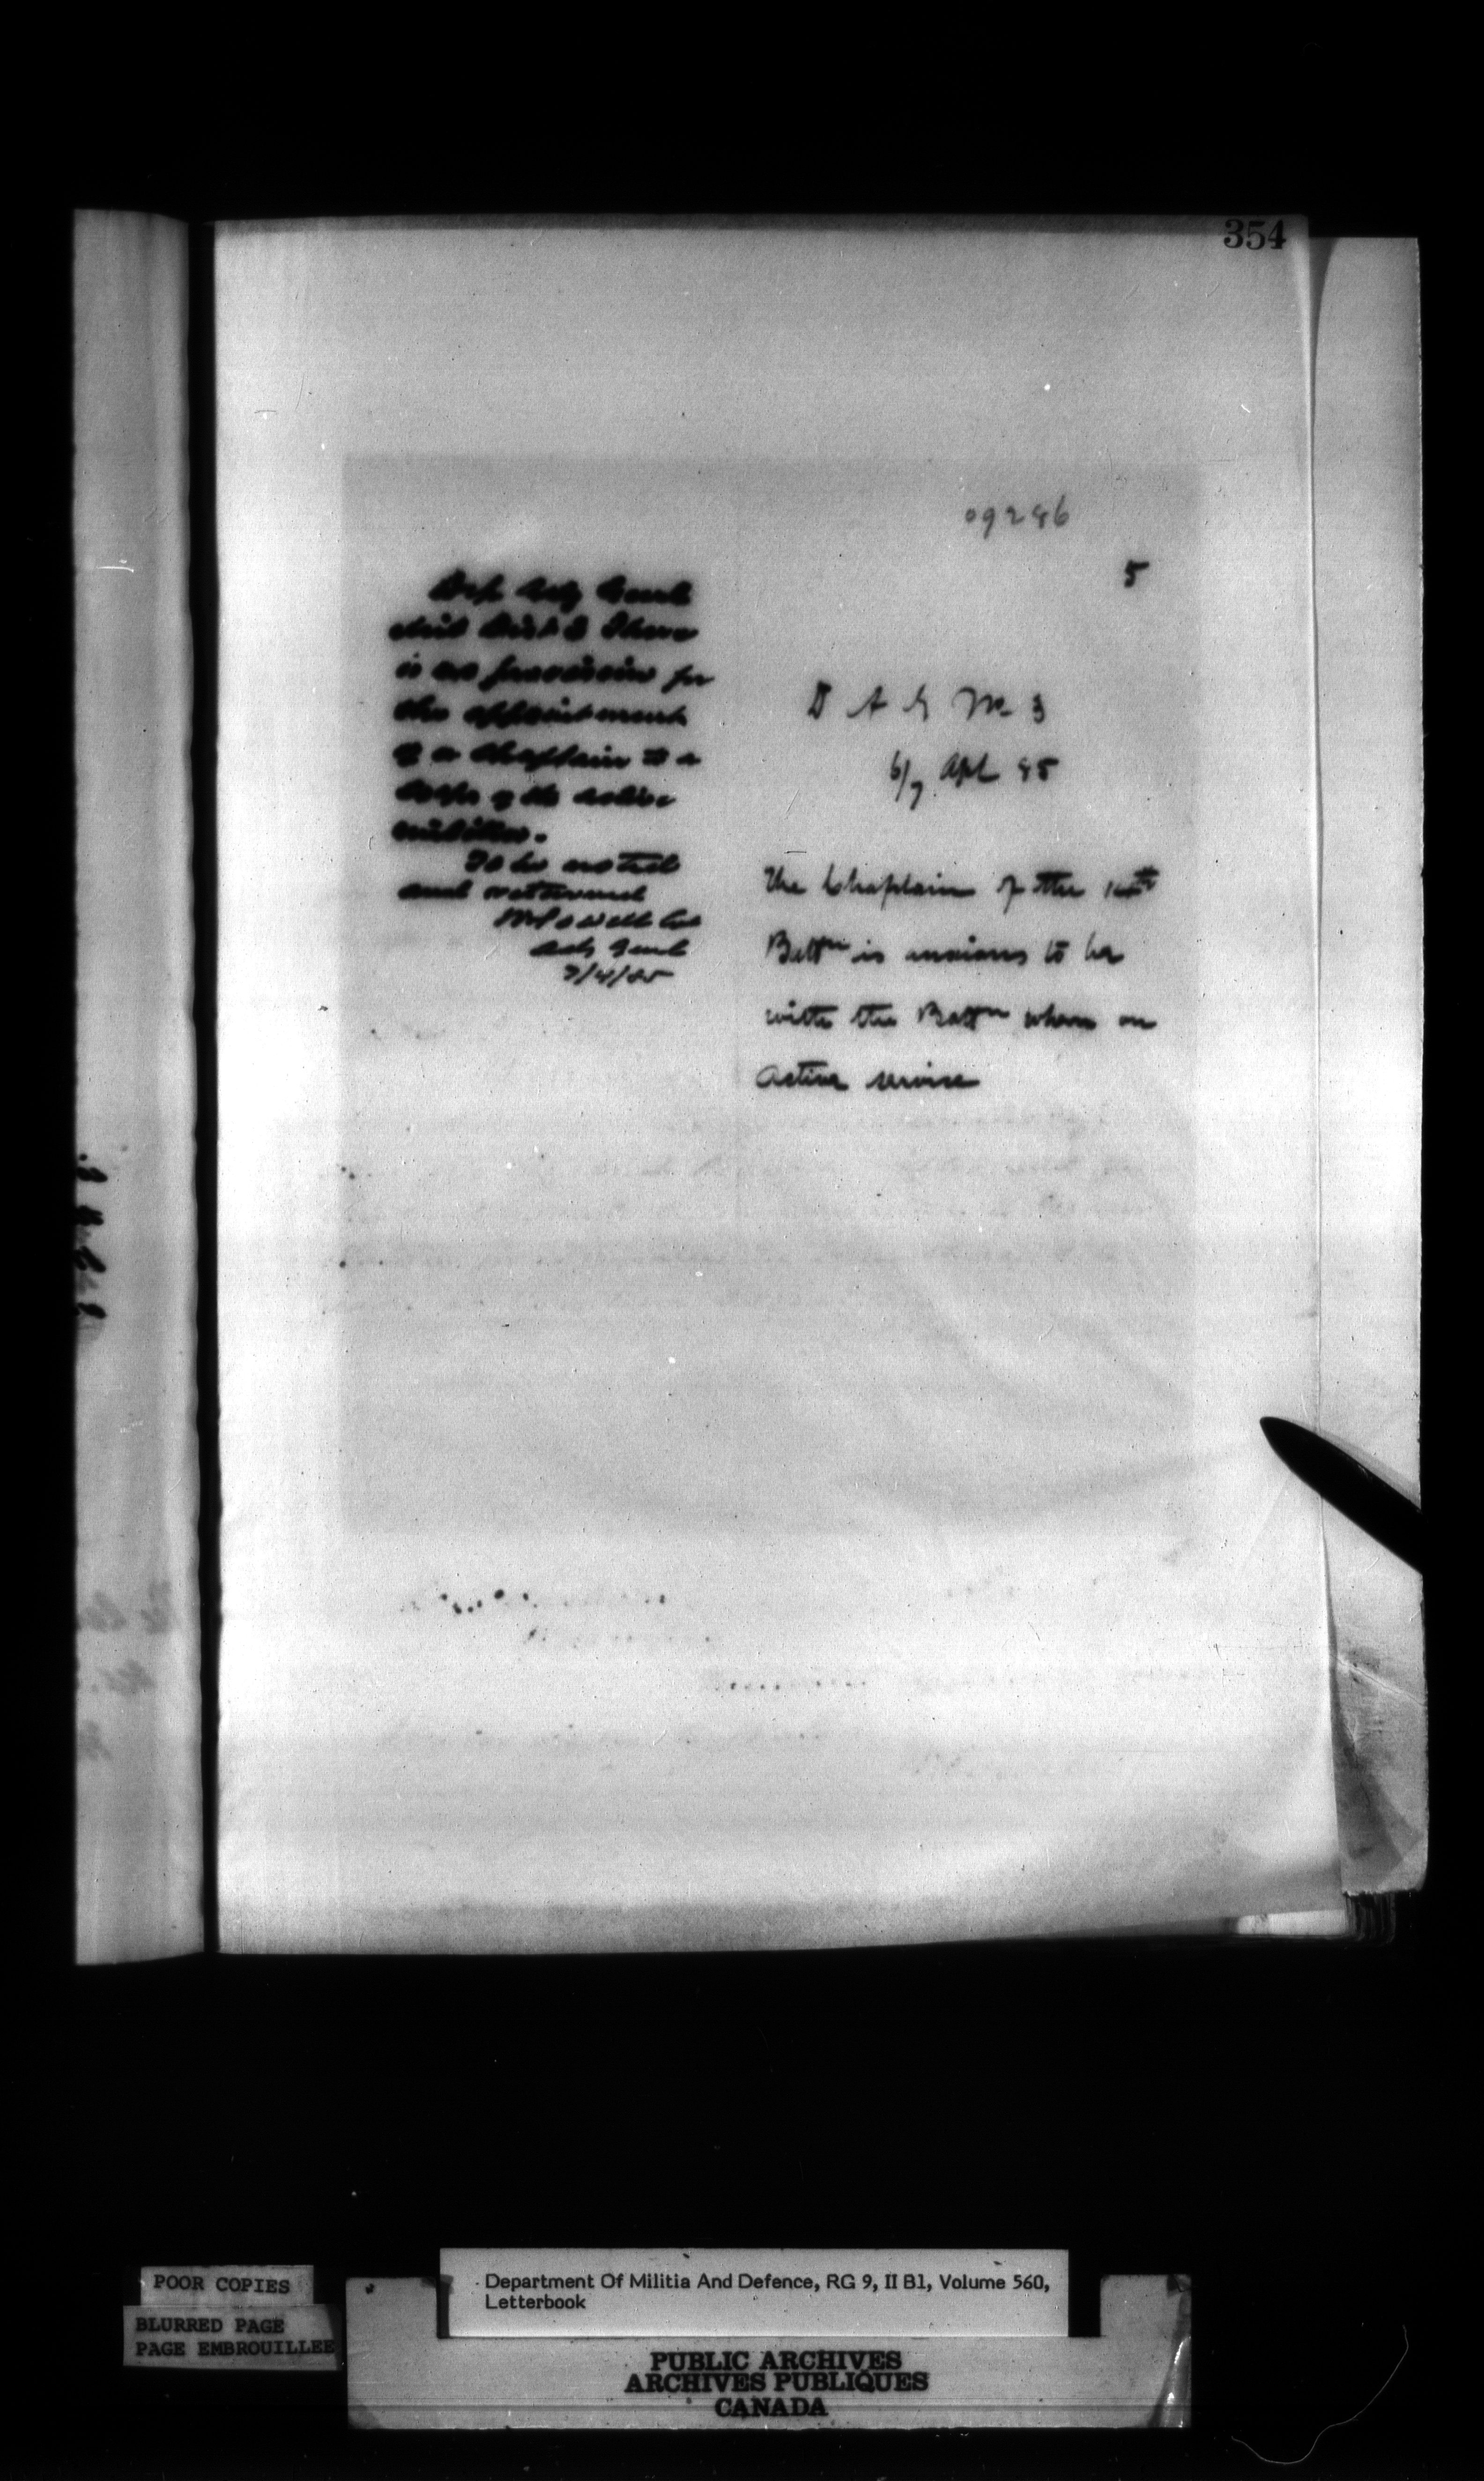 354
09286
5
Dep Adj Genl
Mil Dist 3 There
is no provision for
the appointment
of a Chaplain to a
Corps of the active
militia.
To be noted
and returned
WPowell Col
Adj Genl
7/4/85
D A G No 3
6/7 Apl 85
The Chaplain of the 14th
Battn is anxious to be
with the Battn when on
Active service
POOR COPIES
BLURRED PAGE
PAGE EMBROUILLEE
Department Of Militia And Defence, RG 9, II B1, Volume 560,
Letterbook
PUBLIC ARCHIVES
ARCHIVES PUBLIQUES
CANADA